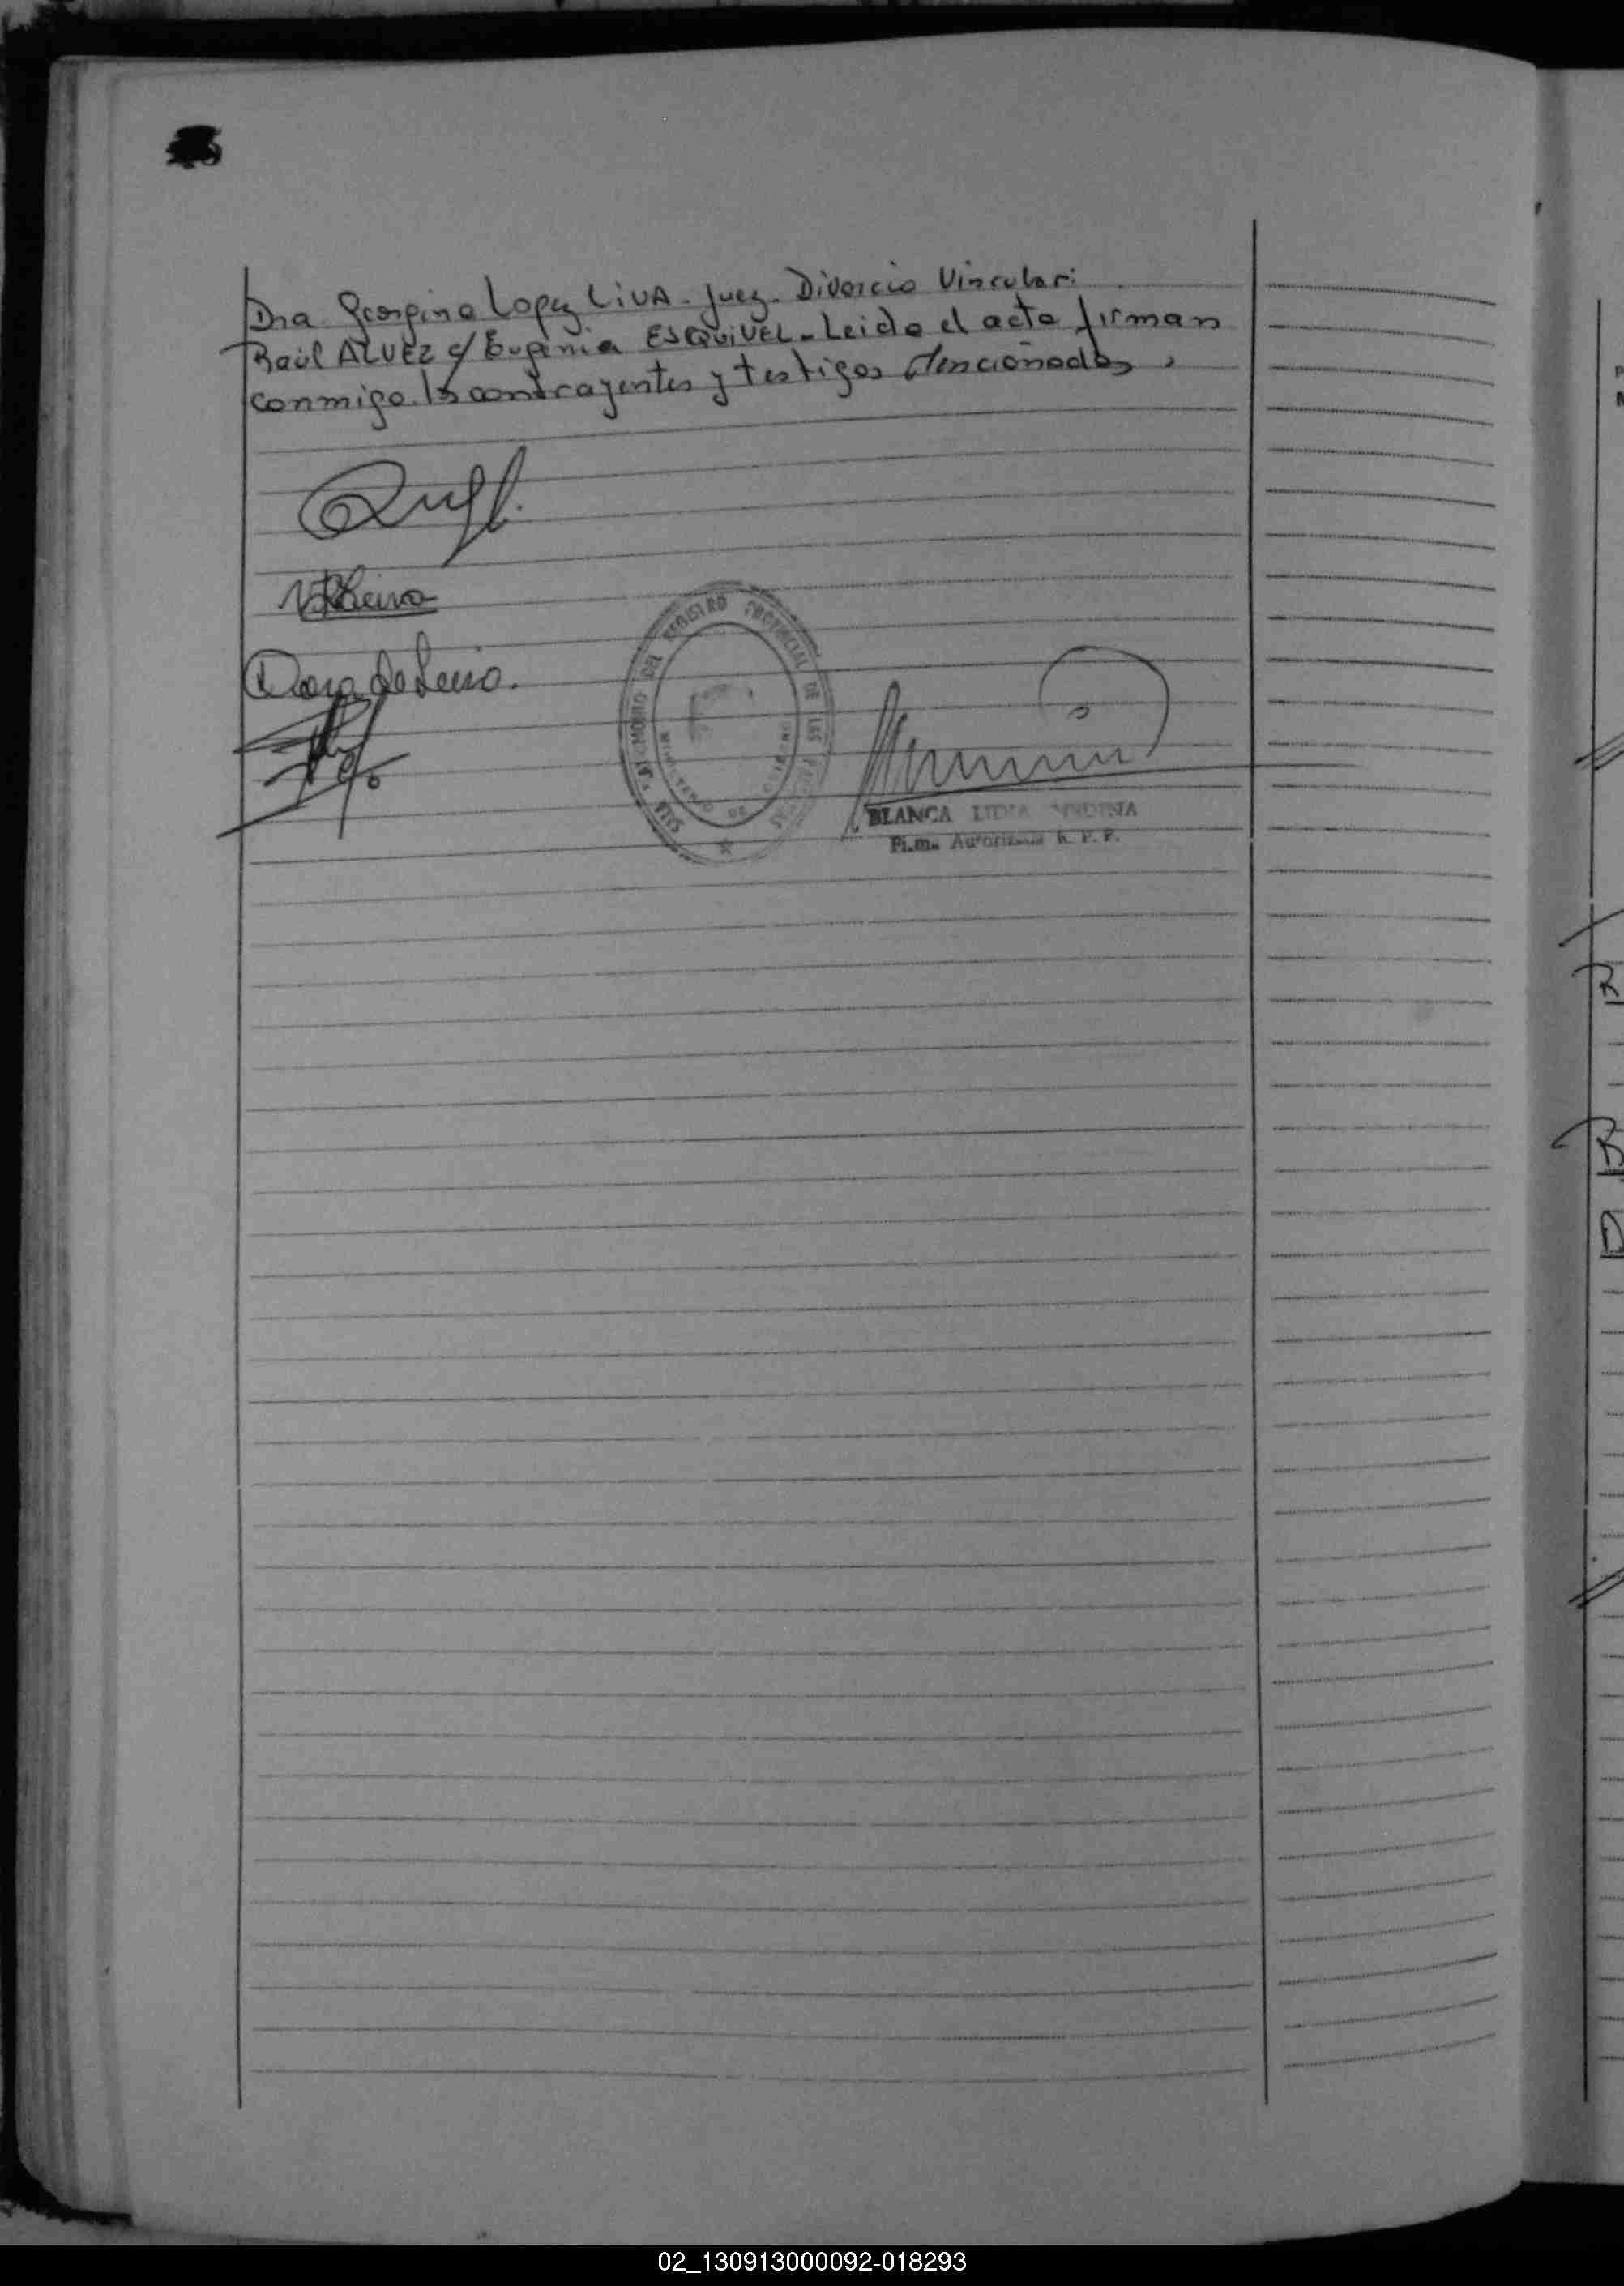 Dra. Georgina Lopez LiVA - Juez - Divorcio Vincular:
Raúl ALVEZ c/ Eugenia ESQUIVEL - Leida el acta firman
conmigo los contrayentes y testigos mencionados.
Dora de Leiva.
DEL REGISTRO PROVINCIAL DE LAS
MINISTERIO DE
BLANCA LIDIA
Autorizada R. P. P.
R
B
D
02_130913000092-018293